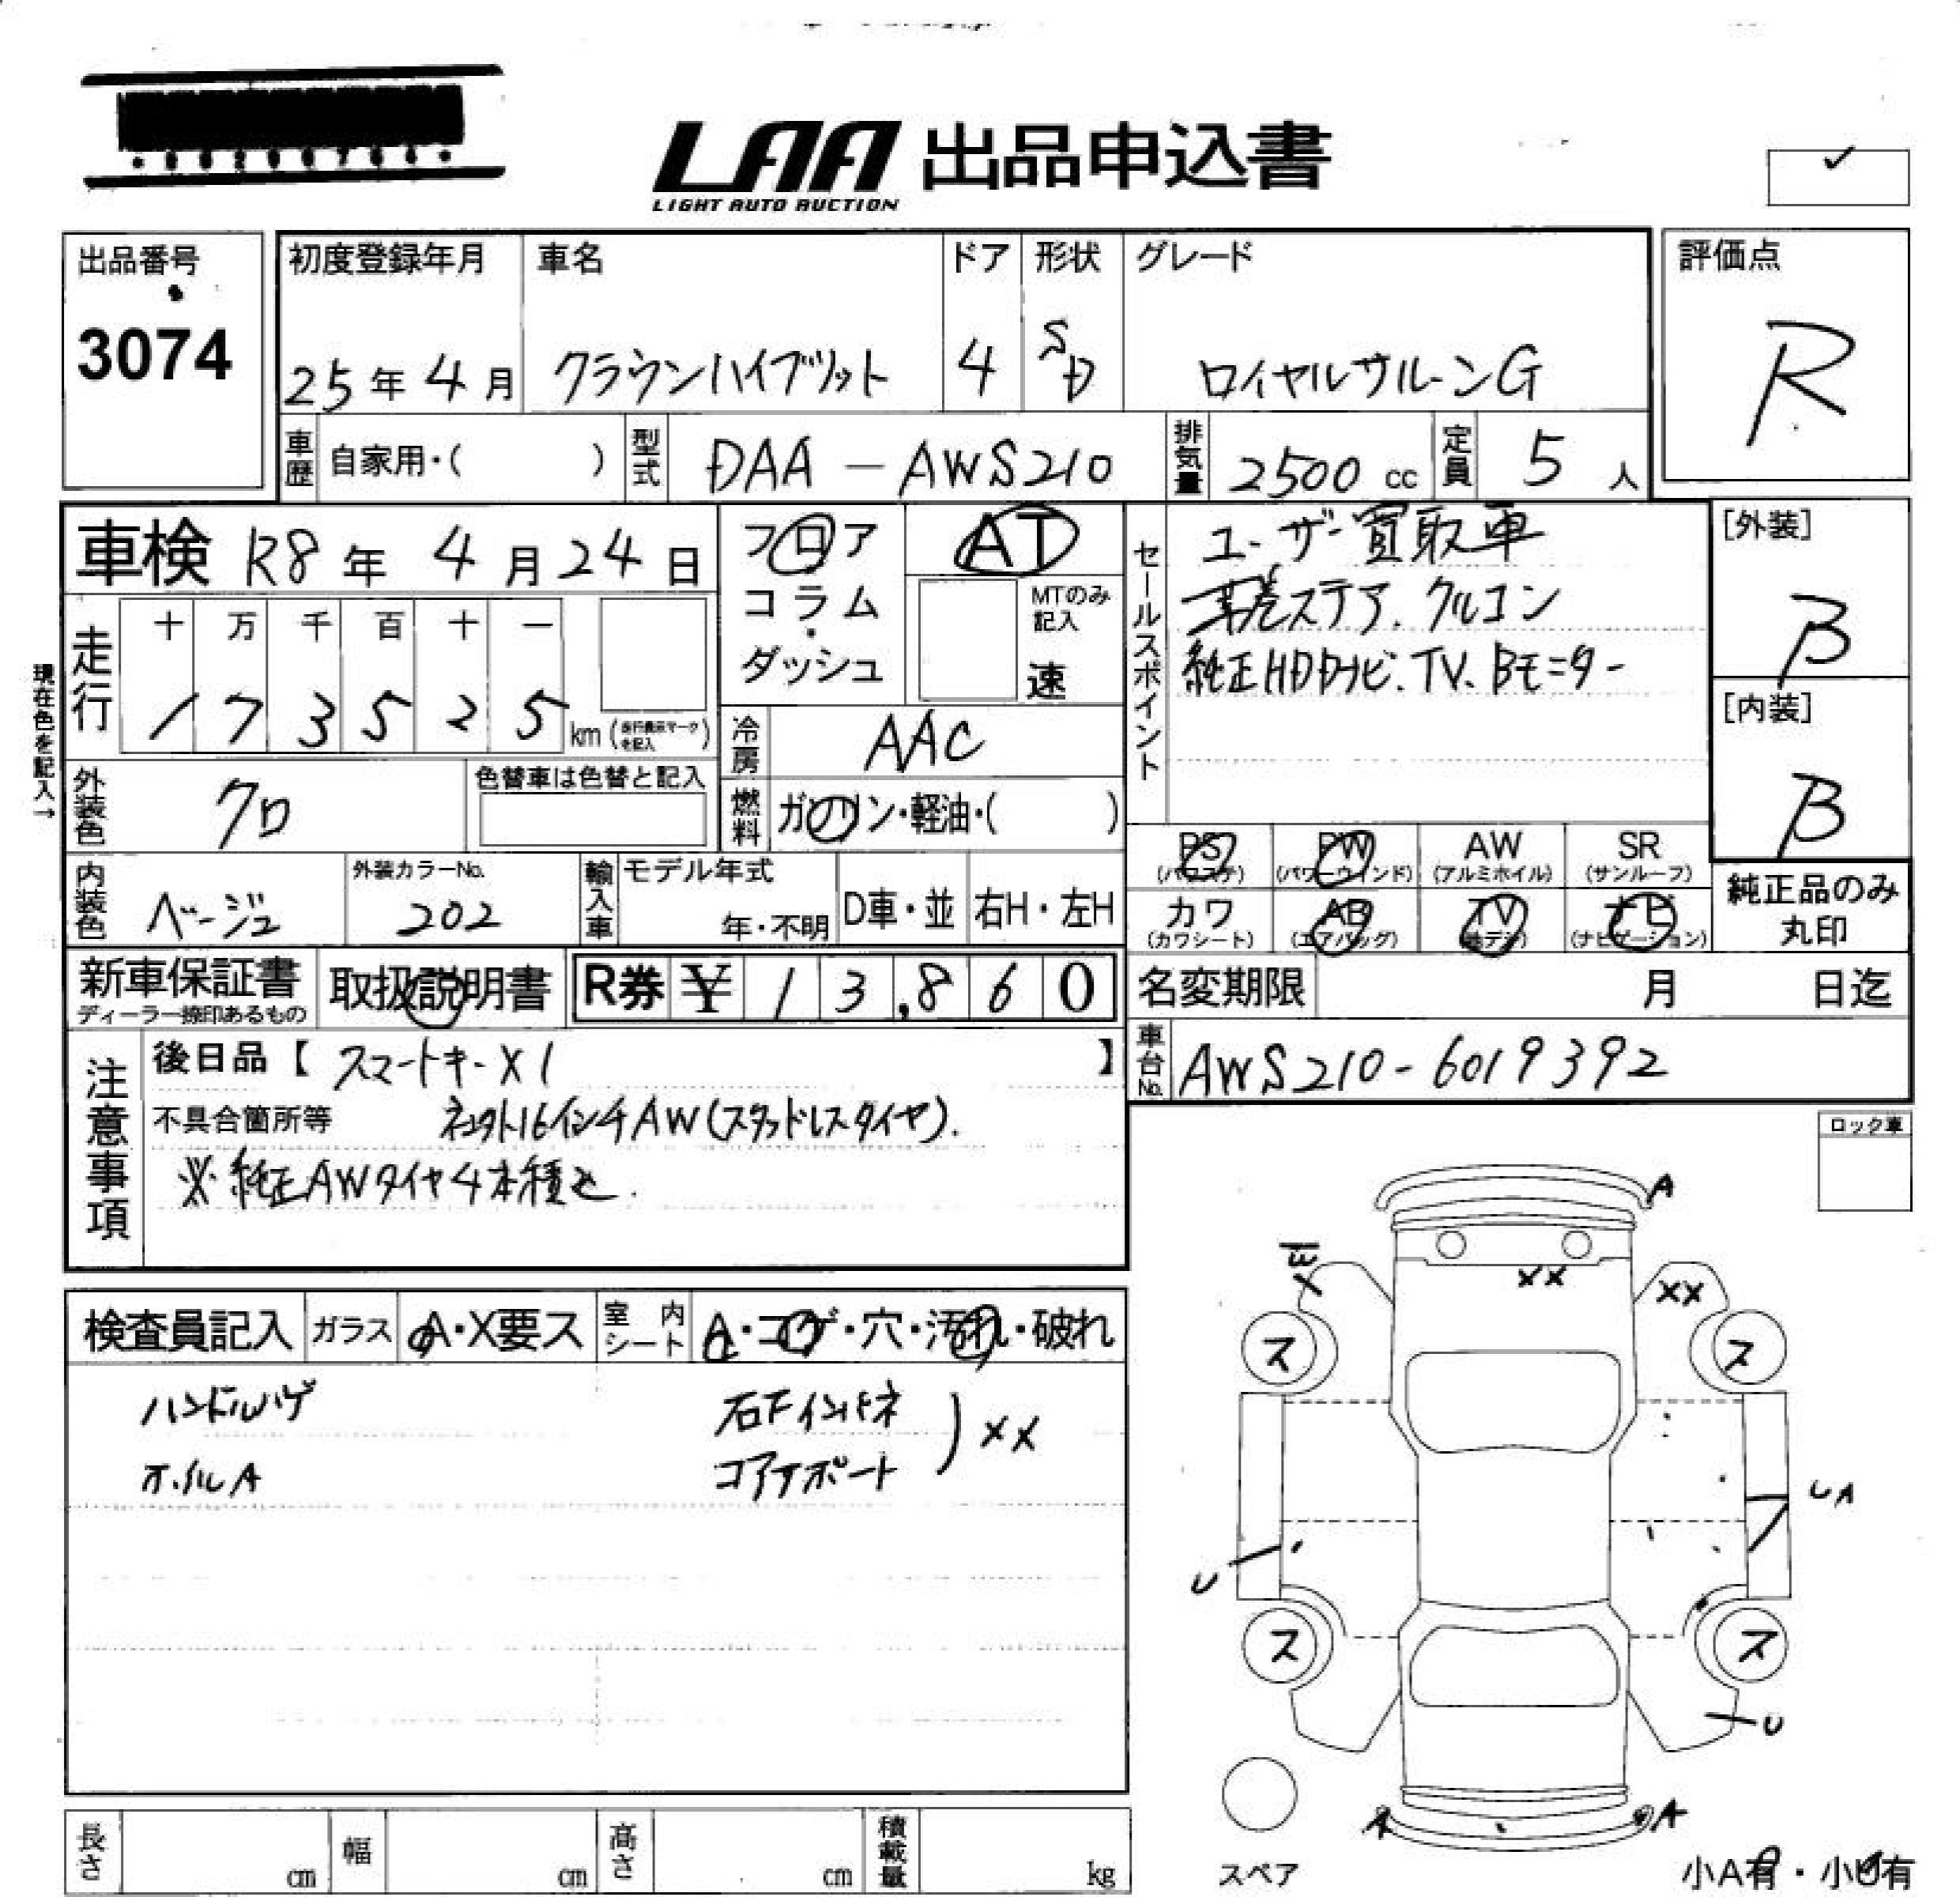 LAA 出品申込書
LIGHT AUTO AUCTION
出品番号
3074
初度登録年月
25年4月
車名
クラウンハイブリット
ドア
4
形状
SD
グレード
ロイヤルサルーンG
評価点
R
車歴 自家用・( )
型式 DAA-AWS210
排気量 2500cc
定員 5人
車検 R8年4月24日
フロア
コラム
・
ダッシュ
AT
MTのみ記入
速
セールスポイント
ユーザー買取車
革巻ステア.クルコン
純正HDDナビ.TV.Bモニター
[外装]
B
[内装]
B
現在色を記入→
走行
十 万 千 百 十 一
1 7 3 5 2 5 km (走行表示マークを記入)
冷房 AAC
外装色 クロ
色替車は色替と記入
燃料 ガソリン・軽油・( )
PS (パワステ)
PW (パワーウインド)
AW (アルミホイル)
SR (サンルーフ)
カワ (カワシート)
AB (エアバッグ)
TV (地デジ)
ナビ (ナビゲーション)
純正品のみ
丸印
内装色 ベージュ
外装カラーNo.
202
輸入車
モデル年式
年・不明
D車・並
右H・左H
新車保証書
ディーラー捺印あるもの
取扱説明書
R券 ¥ 1 3,8 6 0
名変期限 月 日迄
車台No. AWS210-6019392
注意事項
後日品【 スマートキー×1 】
不具合箇所等 社外16インチAW(スタッドレスタイヤ).
※純正AWタイヤ4本積込.
ロック車
検査員記入
ガラス A・X要ス
室内シート A・コゲ・穴・汚れ・破れ
ハンドルハゲ
ホイルA
右Fインナー
コアサポート
) XX
A
XX
XX
ス
ス
UA
U
ス
ス
U
A
A
スペア
小A有・小U有
長さ cm
幅 cm
高さ cm
積載量 kg